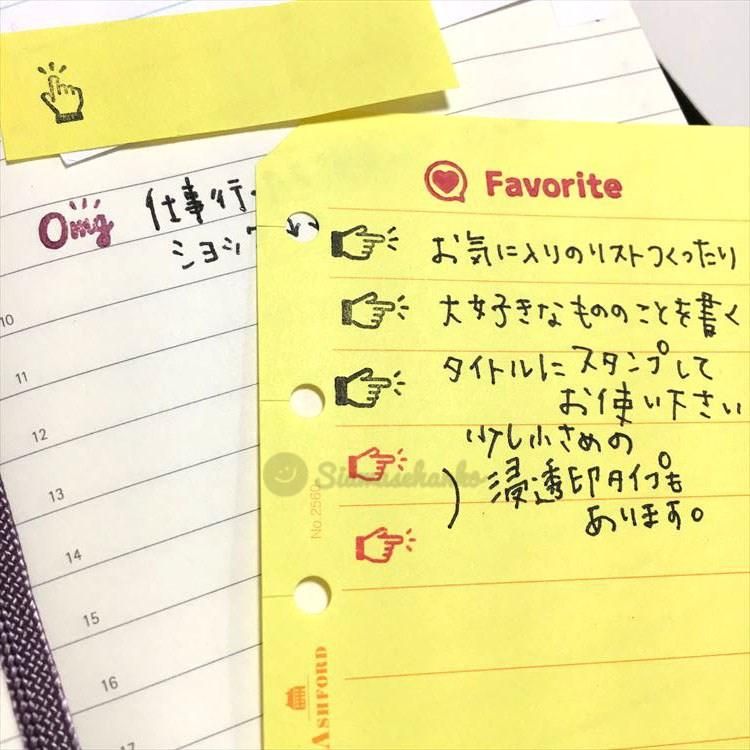 Omg 仕事行
ショッ
10
11
12
13
14
15
16
17
Favorite
お気に入りのリストつくったり
大好きなもののことを書く
タイトルにスタンプして
お使い下さい
少し小さめの
浸透印タイプも
あります。
Siawasehanko
No.2560
ASHFORD